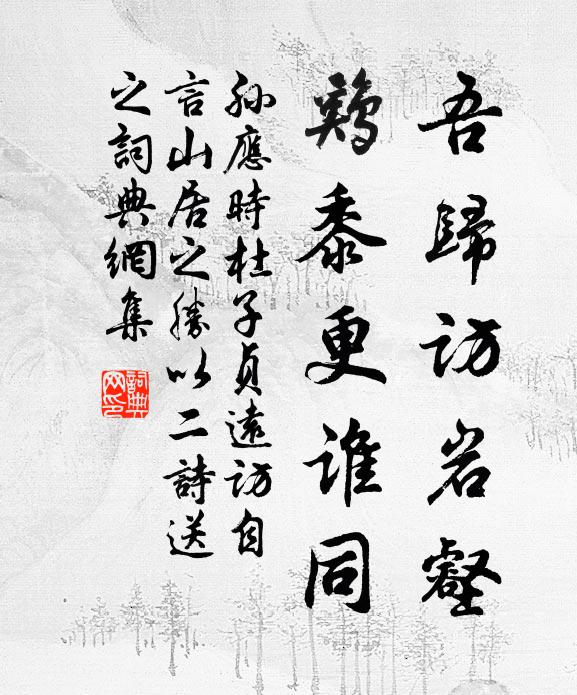 吾歸訪岩壑
鷄黍更誰同
孫應時杜子貞遠訪自
言山居之勝以二詩送
之詞典網集
詞典网印